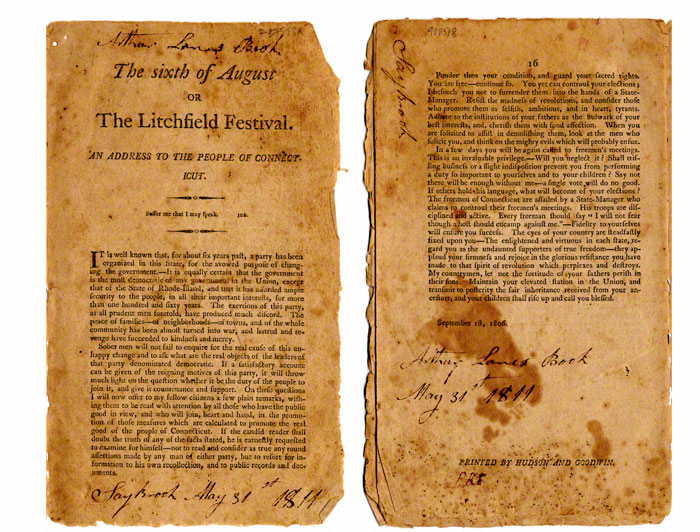 Arthur Lanes Book
The sixth of August
OR
The Litchfield Festival.
AN ADDRESS TO THE PEOPLE OF CONNECT-
ICUT.
Suffer me that I may speak. JOB.
IT is well known that, for about six years past, a party has been
organized in this State, for the avowed purpose of chang-
ing the government.—It is equally certain that the government
is the most democratic of any government in the Union, except
that of the State of Rhode-Island, and that it has afforded ample
security to the people, in all their important interests, for more
than one hundred and sixty years. The exertions of this party,
as all prudent men foretold, have produced much discord. The
peace of families—of neighborhoods—of towns, and of the whole
community has been almost turned into war, and hatred and re-
venge have succeeded to kindness and mercy.
Sober men will not fail to enquire for the real cause of this un-
happy change and to ask what are the real objects of the leaders of
that party denominated democratic. If a satisfactory account
can be given of the reigning motives of this party, it will throw
much light on the question whether it be the duty of the people to
join it, and give it countenance and support. On these questions
I will now offer to my fellow citizens a few plain remarks, wish-
ing them to be read with attention by all those who have the public
good in view, and who will join, heart and hand, in the promo-
tion of those measures which are calculated to promote the real
good of the people of Connecticut. If the candid reader shall
doubt the truth of any of the facts stated, he is earnestly requested
to examine for himself—not to read and consider as true any round
assertions made by any man of either party, but to resort for in-
formation to his own recollection, and to public records and doc-
uments.
Saybrook May 31st 1811
Saybrook
16
Ponder then your condition, and guard your sacred rights.
You are free—continue so. You yet can controul your elections;
I beseech you not to surrender them into the hands of a State-
Manager. Resist the madness of revolutions, and consider those
who promote them as selfish, ambitious, and in heart, tyrants.
Adhere to the institutions of your fathers as the bulwark of your
best interests, and, cherish them with fond affection. When you
are solicited to assist in demolishing them, look at the men who
solicit you, and think on the mighty evils which will probably ensue.
In a few days you will be again called to freemen's meetings.
This is an invaluable privilege.—Will you neglect it? Shall trif-
ling business or a slight indisposition prevent you from performing
a duty so important to yourselves and to your children? Say not
there will be enough without me—a single vote will do no good.
If others hold this language, what will become of your elections?
The freemen of Connecticut are assailed by a State-Manager who
claims to controul their freemen's meetings. His troops are dis-
ciplined and active. Every freeman should say "I will not fear
though a host should encamp against me."—Fidelity to yourselves
will ensure you success. The eyes of your country are steadfastly
fixed upon you—The enlightened and virtuous in each state, re-
gard you as the undaunted supporters of true freedom—they ap-
plaud your firmness and rejoice in the glorious resistance you have
made to that spirit of revolution which perplexes and destroys.
My countrymen, let not the fortitude of your fathers perish in
their sons. Maintain your elevated station in the Union, and
transmit to posterity the fair inheritance received from your an-
cestors, and your children shall rise up and call you blessed.
September 18, 1806.
Arthur Lanes Book
May 31st 1811
PRINTED BY HUDSON AND GOODWIN.